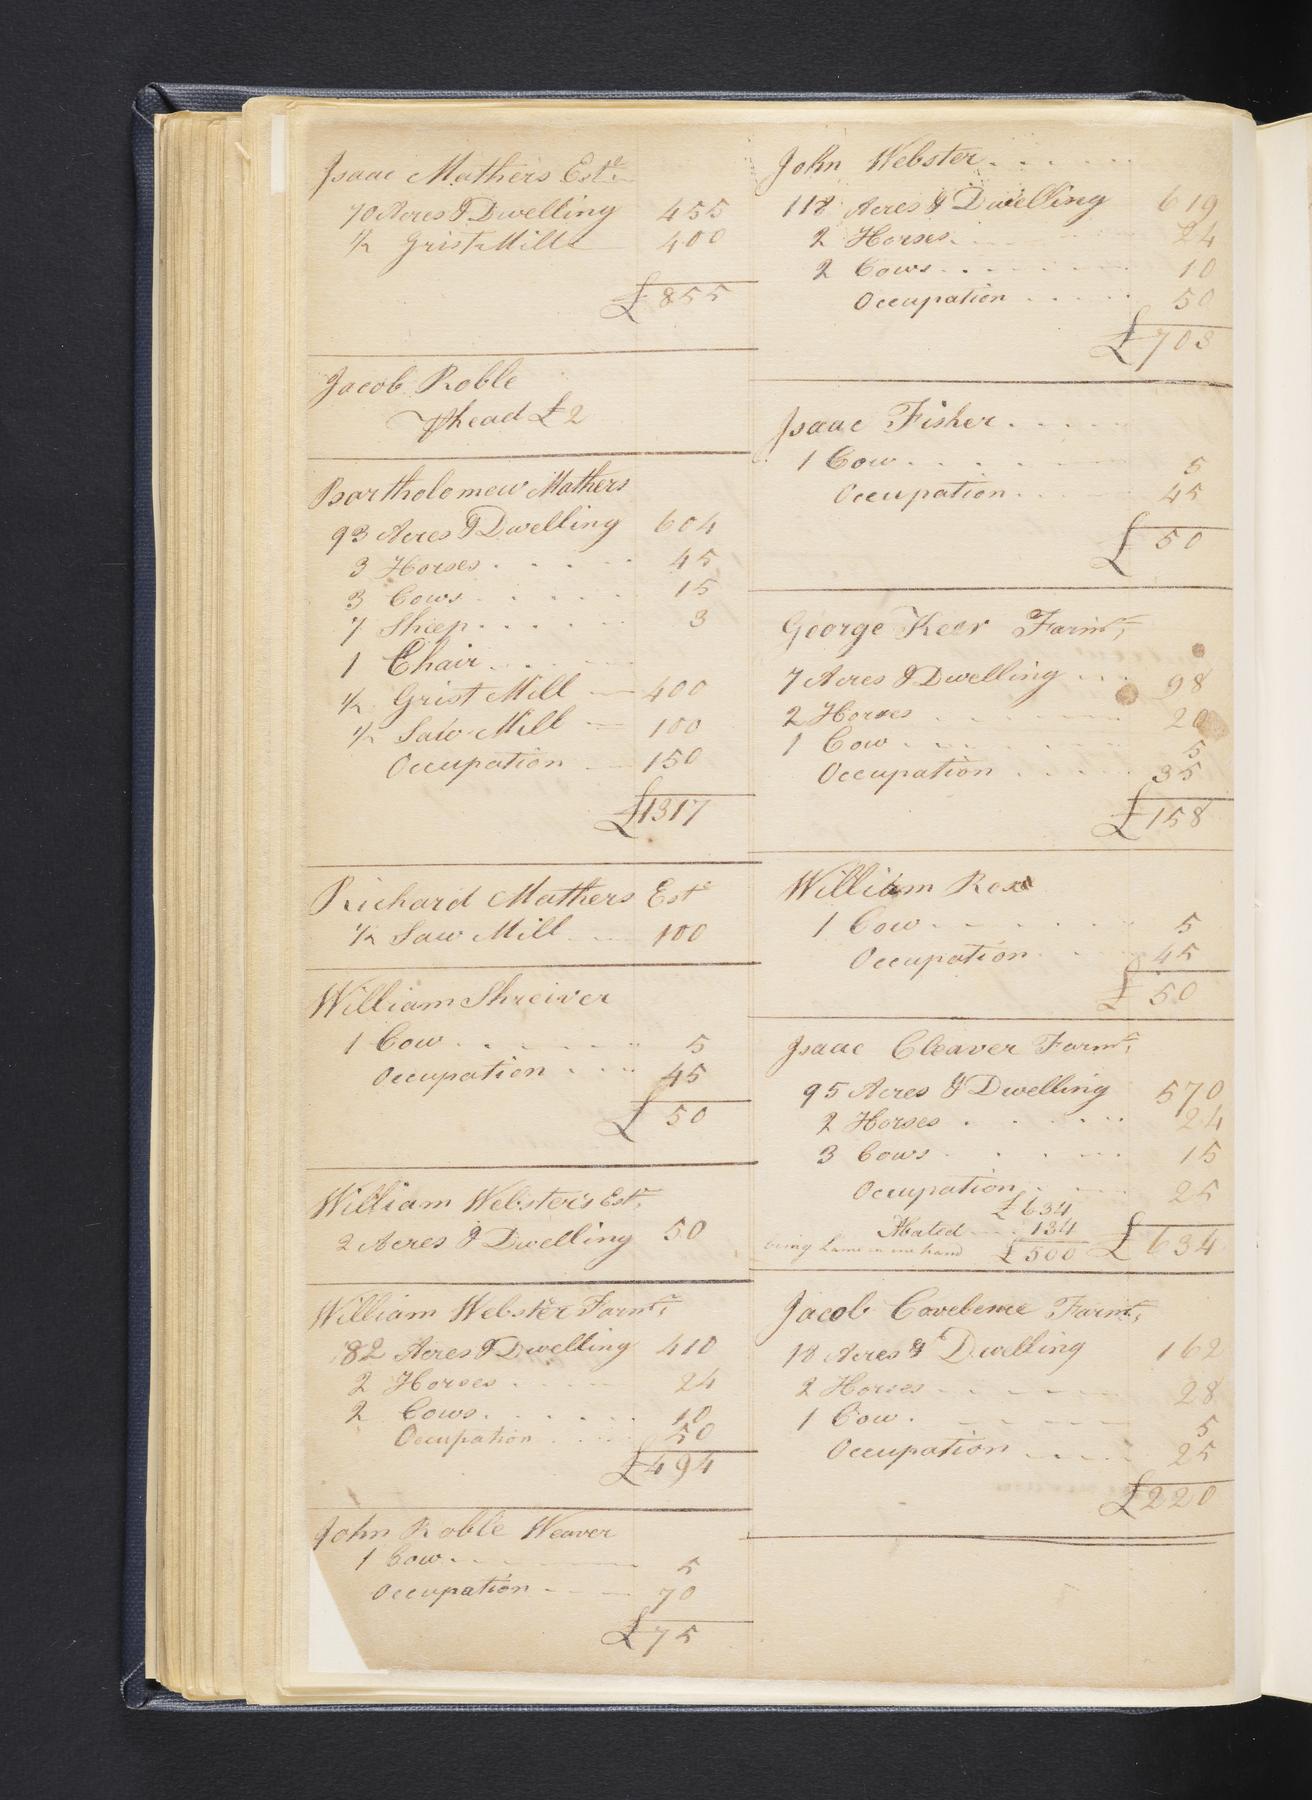 Isaac Mathers Este
70 Acres & Dwelling 455
½ Grist Mill 400
£ 855
Jacob Roble
⅌ head £ 2
Bartholomew Mathers
93 Acres & Dwelling 604
3 Horses . . . . . 45
3 Cows . . . . . 15
7 Sheep . . . . . 3
1 Chair . . . .
½ Grist Mill — 400
½ Saw Mill — 100
Occupation — 150
£1317
Richard Mathers Este
½ Saw Mill 100
William Shreiver
1 Cow . . . . . . 5
Occupation . . . . 45
£ 50
William Webster's Este
2 Acres & Dwelling 50
William Webster Farmr,
82 Acres & Dwelling 410
2 Horses . . . . 24
2 Cows . . . . . 10
Occupation . . . . 50
£494
John Roble Weaver
1 Cow . . . . 5
Occupation - - - 70
£75
John Webster . . . . .
118 Acres & Dwelling 619
2 Horses . . . . 24
2 Cows . . . . . 10
Occupation . . . . . 50
£703
Isaac Fisher . . . . .
1 Cow . . . . . 5
Occupation . . . . . 45
£ 50
George Keer Farmr,
7 Acres & Dwelling . . . 98
2 Horses . . . . . 20
1 Cow . . . . . . 5
Occupation . . . . . 35
£158
William
1 Cow . . . . . . 5
Occupation . . . . 45
£ 50
Isaac Cleaver Farmr,
95 Acres & Dwelling 570
2 Horses . . . . . . 24
3 Cows . . . . . 15
Occupation . . . . 25
£634
Abated . . . 134 £634
being Lame in one hand £500
Jacob Farmr,
18 Acres & Dwelling 162
2 Horses . . . . . 28
1 Cow . . . . . 5
Occupation . . . . 25
£220